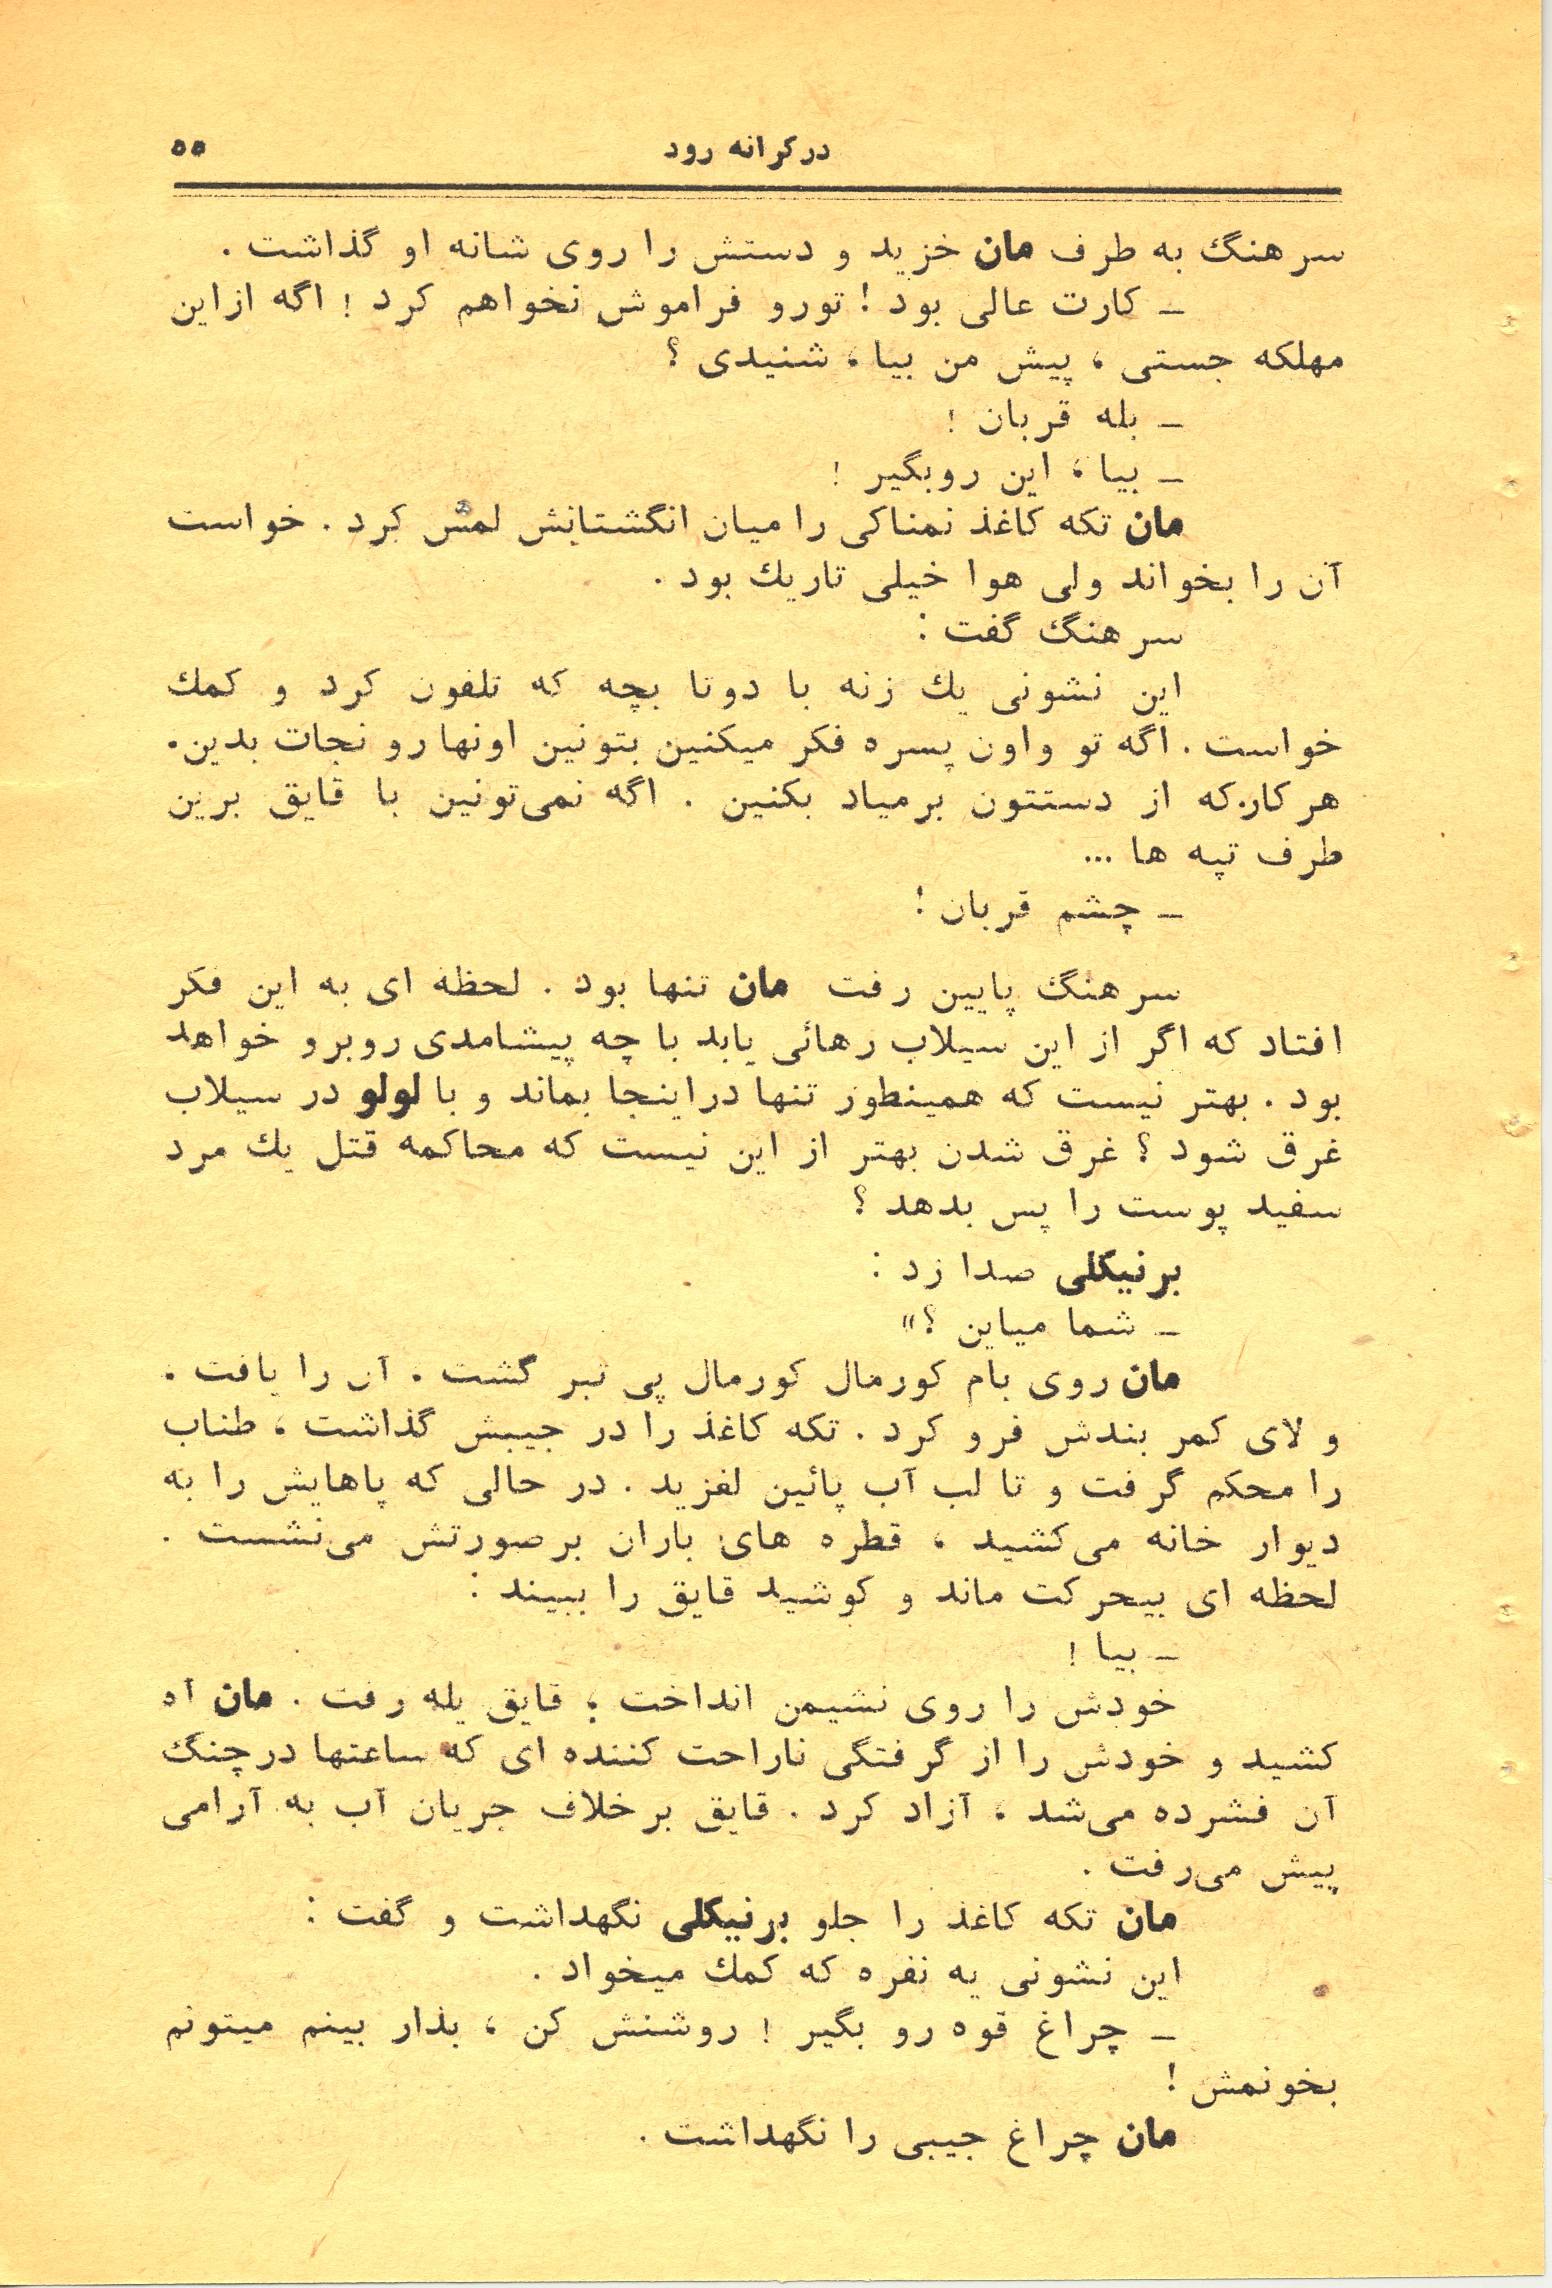 در کرانه رود ۵۵
سرهنگ به طرف مان خزید و دستش را روی شانه او گذاشت .
ـ کارت عالی بود ! تورو فراموش نخواهم کرد ! اگه ازاین
مهلکه جستی ، پیش من بیا ، شنیدی ؟
ـ بله قربان !
ـ بیا ، این روبگیر !
مان تکه کاغذ نمناکی را میان انگشتانش لمس کرد . خواست
آن را بخواند ولی هوا خیلی تاریك بود .
سرهنگ گفت :
این نشونی یك زنه با دوتا بچه که تلفون کرد و کمك
خواست . اگه تو واون پسره فکر میکنین بتونین اونهارو نجات بدین.
هرکارکه از دستتون برمیاد بکنین . اگه نمی‌تونین با قایق برین
طرف تپه ها ...
ـ چشم قربان !
سرهنگ پایین رفت مان تنها بود . لحظه ای به این فکر
افتاد که اگر از این سیلاب رهائی یابد با چه پیشامدی روبرو خواهد
بود . بهتر نیست که همینطور تنها دراینجا بماند و با لولو در سیلاب
غرق شود ؟ غرق شدن بهتر از این نیست که محاکمه قتل یك مرد
سفید پوست را پس بدهد ؟
برنیکلی صدا زد :
ـ شما میاین ؟»
مان روی بام کورمال کورمال پی تبر گشت . آن را یافت .
و لای کمر بندش فرو کرد . تکه کاغذ را در جیبش گذاشت ، طناب
را محکم گرفت و تا لب آب پائین لغزید . در حالی که پاهایش را به
دیوار خانه می‌کشید ، قطره های باران برصورتش می‌نشست .
لحظه ای بیحرکت ماند و کوشید قایق را ببیند :
ـ بیا !
خودش را روی نشیمن انداخت ؛ قایق یله رفت . مان آه
کشید و خودش را از گرفتگی ناراحت کننده ای که ساعتها درچنگ
آن فشرده می‌شد ، آزاد کرد . قایق برخلاف جریان آب به آرامی
پیش می‌رفت .
مان تکه کاغذ را جلو برنیکلی نگهداشت و گفت :
این نشونی یه نفره که کمك میخواد .
ـ چراغ قوه رو بگیر ! روشنش کن ، بذار بینم میتونم
بخونمش !
مان چراغ جیبی را نگهداشت .